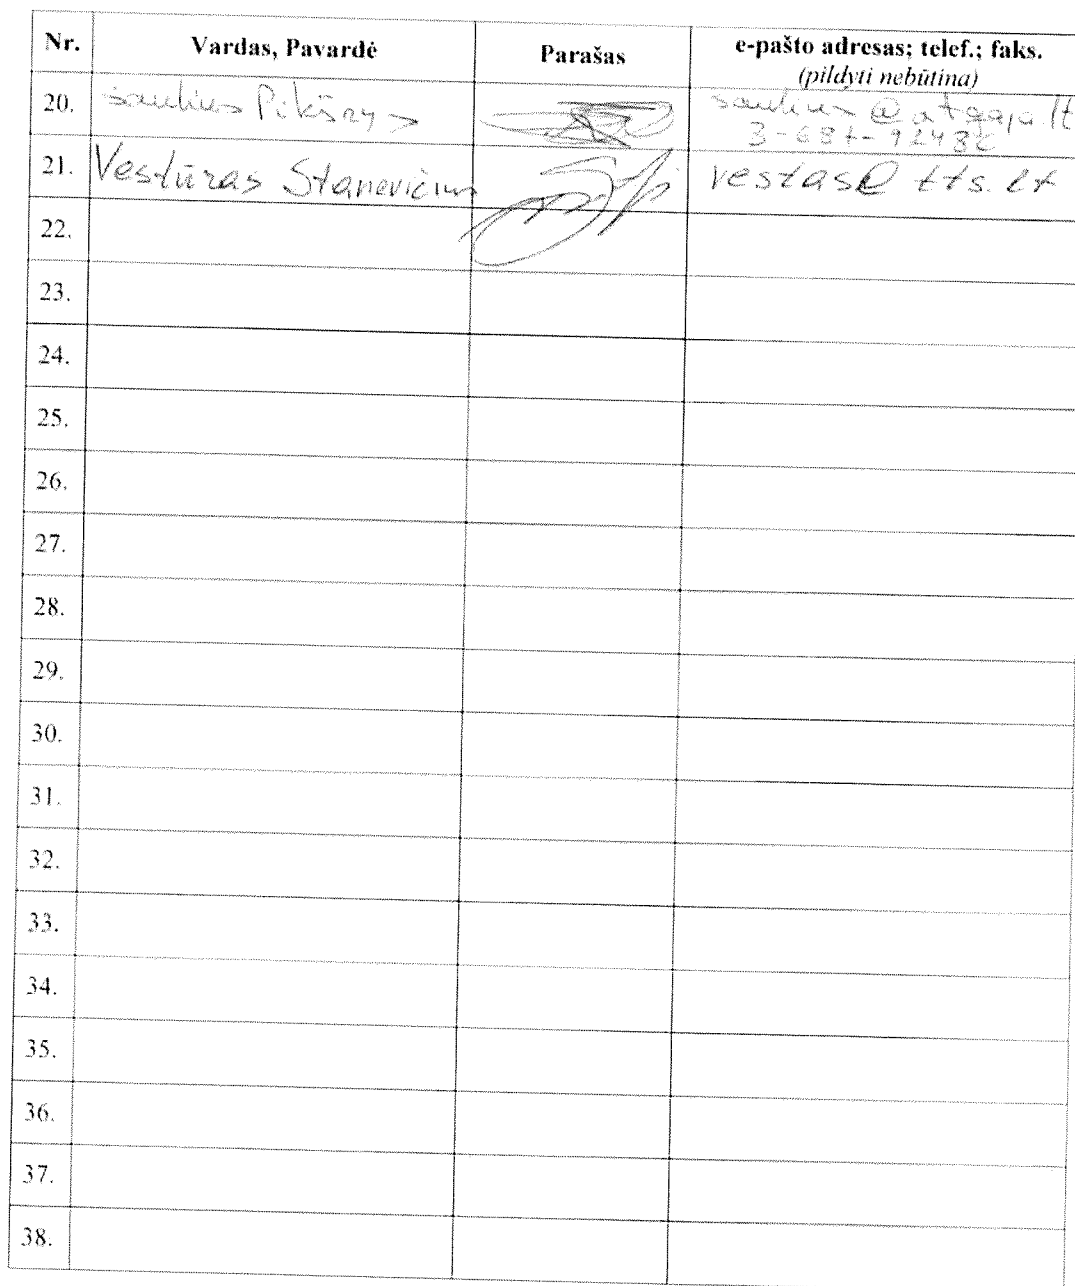 Nr. Vardas, Pavardė Parašas e-pašto adresas; telef.; faks.
(pildyti nebūtina)
20. Saulius Pikšrys saulius@atgaja.lt
21. Vestūras Stanevičius vestas@tts.lt
22.
23.
24.
25.
26.
27.
28.
29.
30.
31.
32.
33.
34.
35.
36.
37.
38.